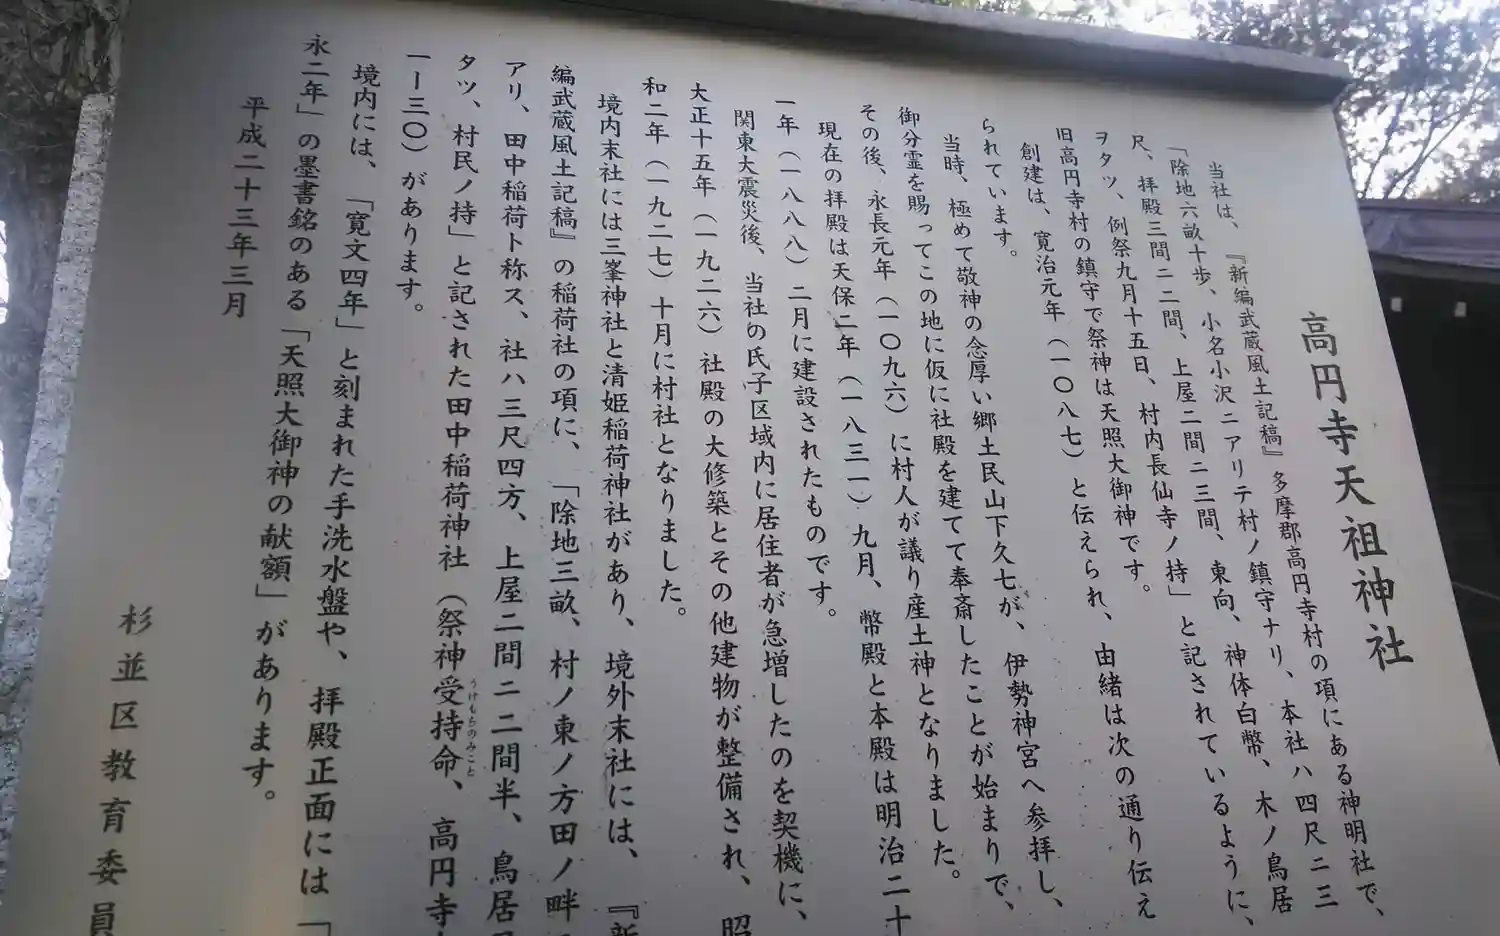 高円寺天祖神社
当社は、『新編武蔵風土記稿』多摩郡高円寺村の項にある神明社で、
「除地六畝十歩、小名小沢ニアリテ村ノ鎮守ナリ、本社ハ四尺ニ三
尺、拝殿三間ニ二間、上屋二間ニ三間、東向、神体白幣、木ノ鳥居
ヲタツ、例祭九月十五日、村内長仙寺ノ持」と記されているように、
旧高円寺村の鎮守で祭神は天照大御神です。
創建は、寛治元年（一〇八七）と伝えられ、由緒は次の通り伝え
られています。
当時、極めて敬神の念厚い郷土民山下久七が、伊勢神宮へ参拝し、
御分霊を賜ってこの地に仮に社殿を建てて奉斎したことが始まりで、
その後、永長元年（一〇九六）に村人が議り産土神となりました。
現在の拝殿は天保二年（一八三一）九月、幣殿と本殿は明治二十
一年（一八八八）二月に建設されたものです。
関東大震災後、当社の氏子区域内に居住者が急増したのを契機に、
大正十五年（一九二六）社殿の大修築とその他建物が整備され、昭
和二年（一九二七）十月に村社となりました。
境内末社には三峯神社と清姫稲荷神社があり、境外末社には、『新
編武蔵風土記稿』の稲荷社の項に、「除地三畝、村ノ東ノ方田ノ畔
アリ、田中稲荷ト称ス、社ハ三尺四方、上屋二間ニ二間半、鳥居
タツ、村民ノ持」と記された田中稲荷神社（祭神受持命、高円寺
うけもちのみこと
一ー三〇）があります。
境内には、「寛文四年」と刻まれた手洗水盤や、拝殿正面には「
永二年」の墨書銘のある「天照大御神の献額」があります。
平成二十三年三月
杉並区教育委員